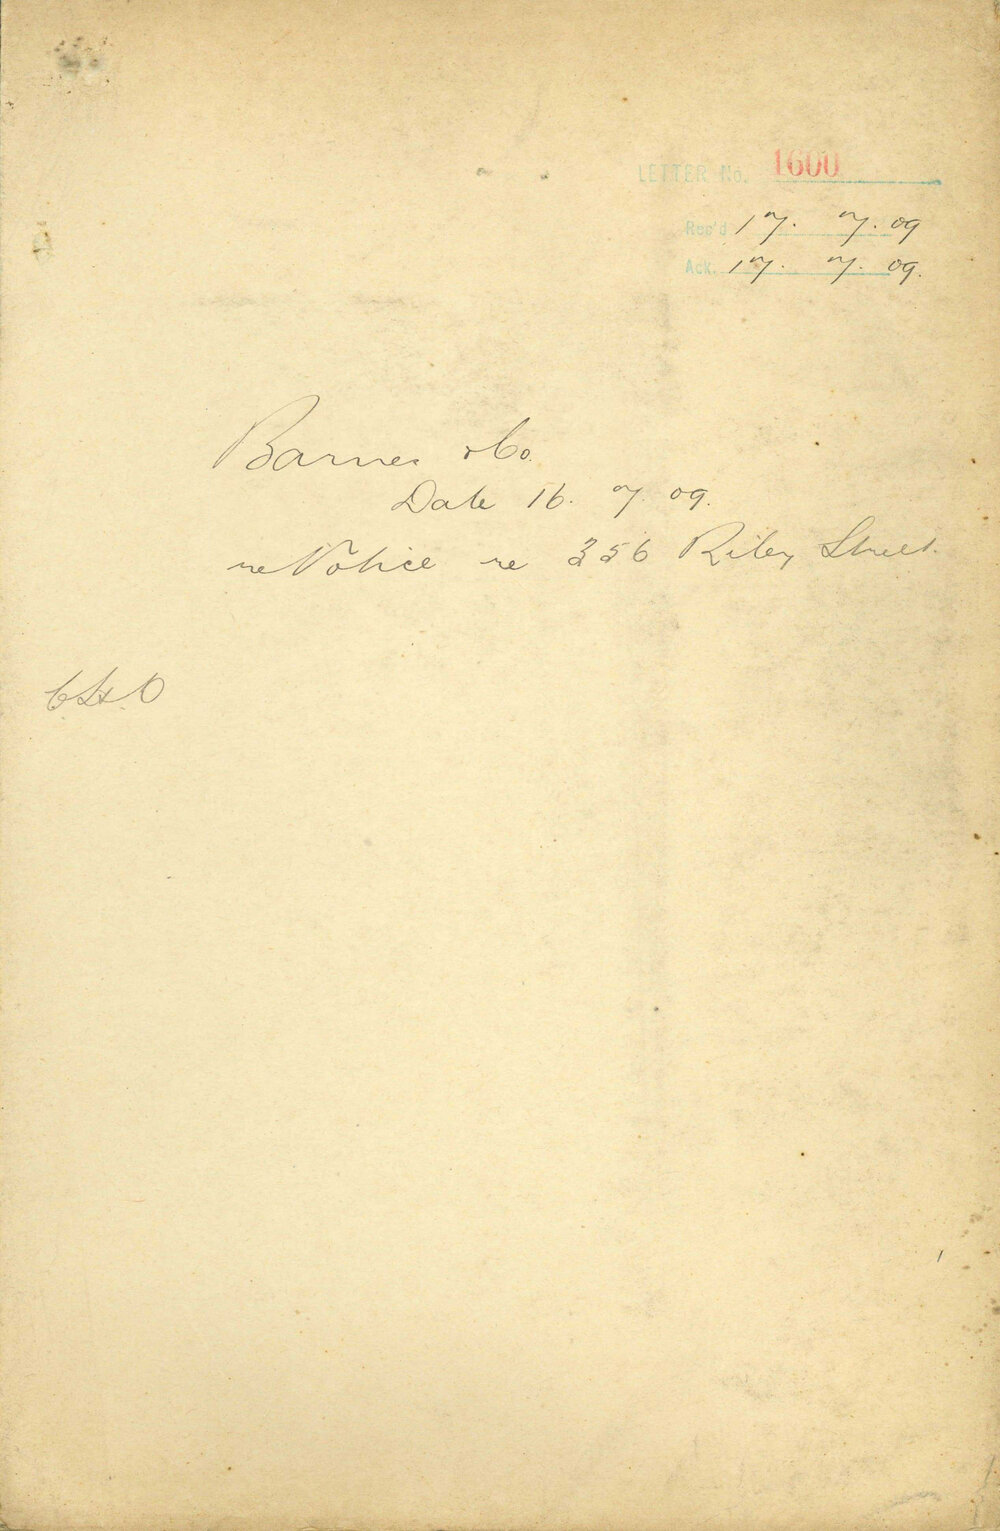 LETTER No. 1600
Rec'd 17. 7. 09
Ack. 17. 7. 09.
Barnes & Co.
Date 16. 7. 09.
re Notice re 356 Riley Street.
C.H.O